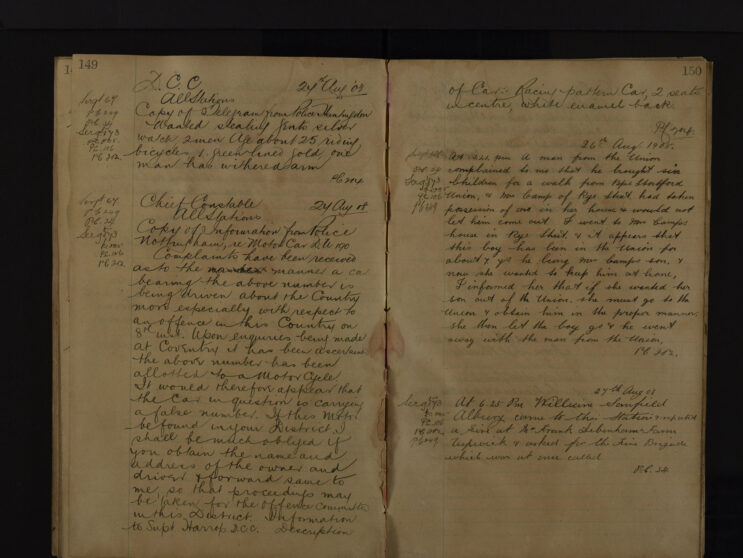 149
D.C.C. 24th Aug '08
All Stations
Copy of Telegram from Police
Wanted stealing gents silver
watch 2 men age about 25 riding
bicycles 1 green lined gold one
man has withered arm
Sergt 67
PC 229
PC 24
Sergt 93
PC 116
PC 202
Chief Constable 24 Aug 08
All Stations
Copy of Information from Police
Nottingham, re Motor Car
Complaints have been received
as to the manner a car
bearing the above number is
being driven about the Country
more especially with respect to
an offence in this Country on
8th inst. Upon enquiries being made
at Coventry it has been ascertained
the above number has been
allotted to a Motor Cycle
It would therefore appear that
the Car in question is carrying
a false number. If this Motor
be found in your District I
shall be much obliged if
you obtain the name and
address of the owner and
driver & forward same to
me, so that proceedings may
be taken for the offence committed
in this District. Information
to Supt Harrop D.C.C. Description
Sergt 67
PC 229
PC 24
Sergt 93
PC 116
PC 202
150
of Car :- Racing pattern Car, 2 seats
in centre, white enamel back.
26th Aug 1908.
At pm a man from the Union
complained to me that he brought six
Children for a walk from Bps Stortford
Union, & Mrs Camp of Rye Street had taken
possession of one in her house & would not
let him come out. I went to Mrs Camps
house in Rye Street & it appears that
this boy has been in the Union for
about 7 yrs he being Mrs Camps son, &
now she wanted to keep him at home,
I informed her that if she wanted her
son out of the Union, she must go to the
Union & obtain him in the proper manner.
She then let the boy go & he went
away with the man from the Union.
PC 202.
27th Aug 08
At 6.25 Pm William
Albury came to this Station & reported
a fire at Mr Frank Debenhams Farm
& asked for the Fire Brigade
which was at once called
PC. 24.
Sergt 93
PC 116
PC 202
PC 229